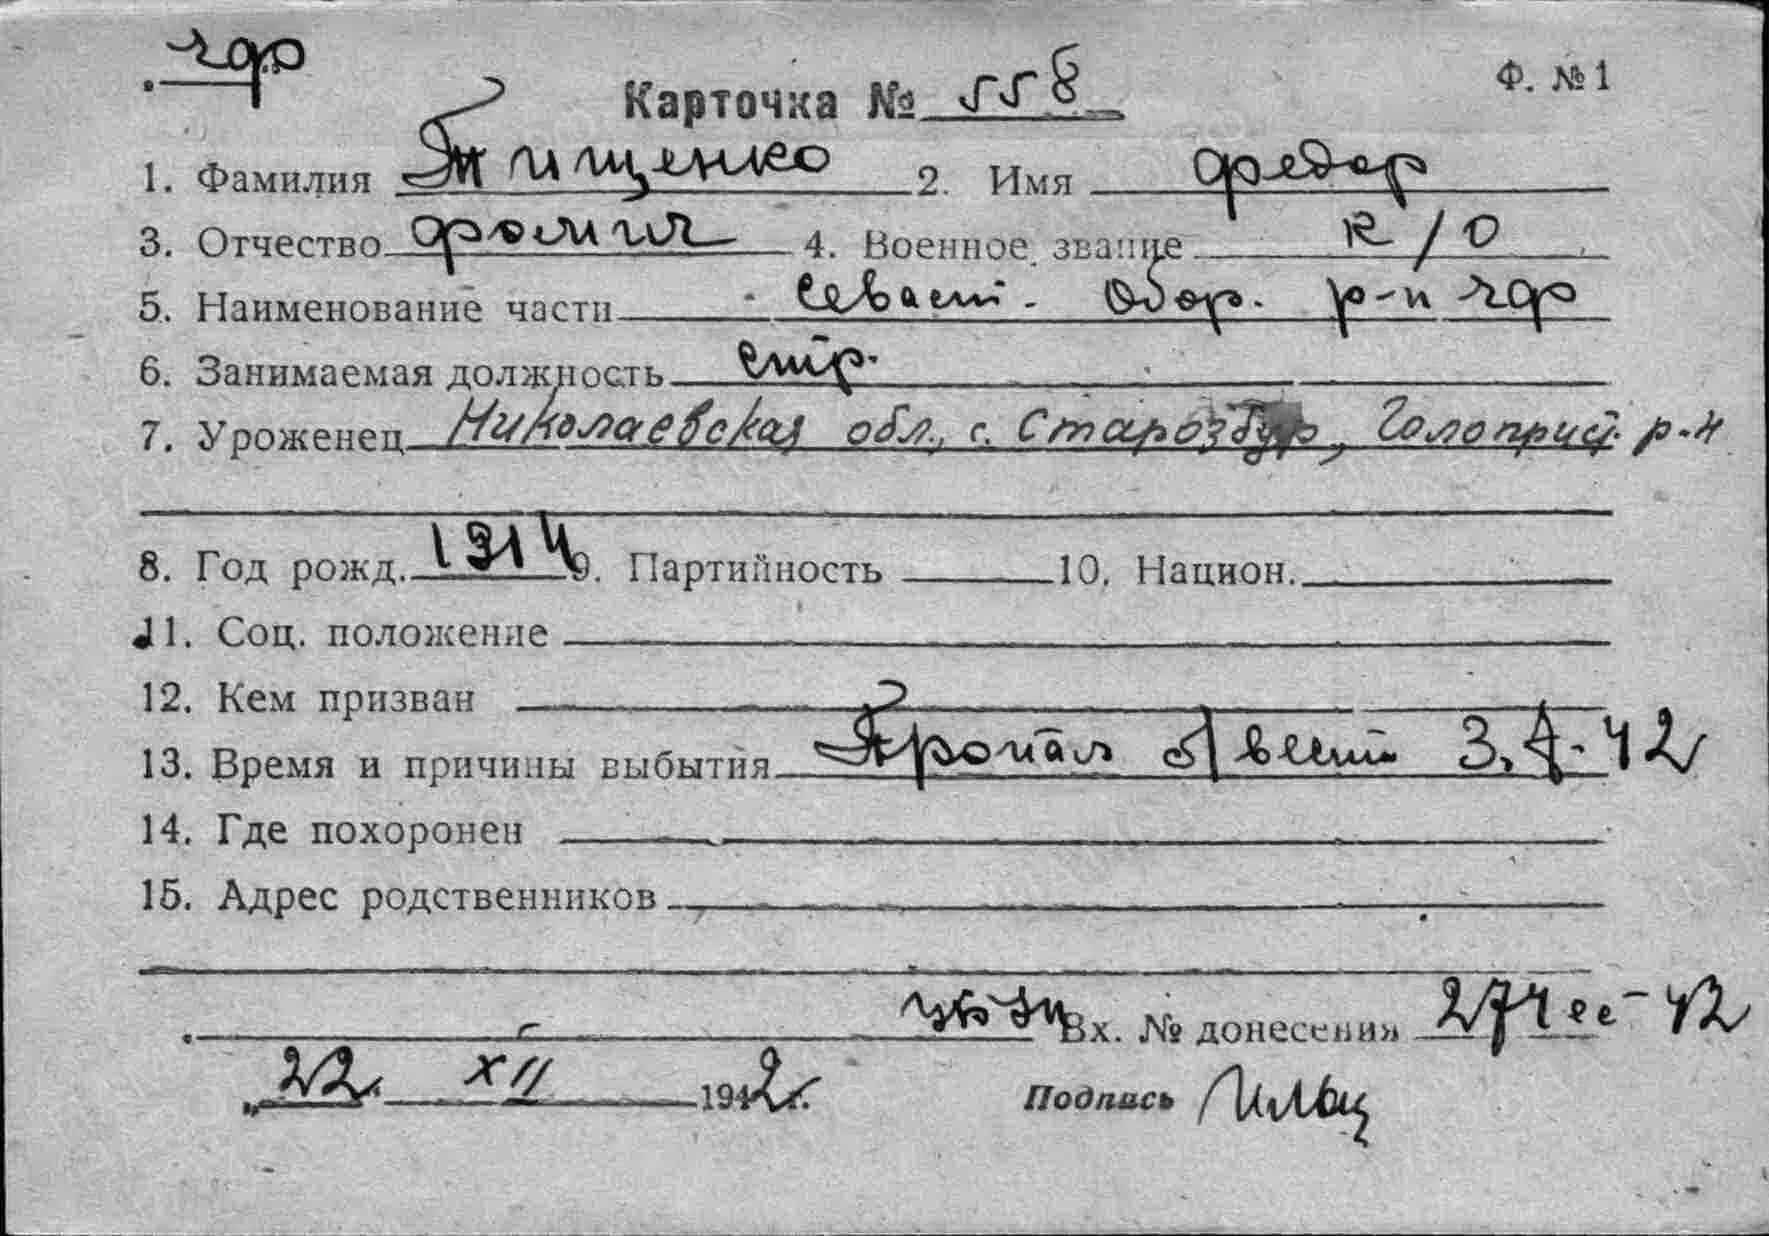 ЧФ
Карточка № 558 Ф. №1
1. Фамилия Тищенко 2. Имя Федор
3. Отчество Фомич 4. Военное звание К/О
5. Наименование части Севаст. Обор. р-н ЧФ
6. Занимаемая должность стр.
7. Уроженец Николаевская обл., с. Старозбур, Голоприст. р-н
8. Год рожд. 1914 9. Партийность 10. Национ.
11. Соц. положение
12. Кем призван
13. Время и причины выбытия Пропал б/вести 3.7.42
14. Где похоронен
15. Адрес родственников
Вх. № донесения 274сс-42
„22. XII 1942г.
Подпись